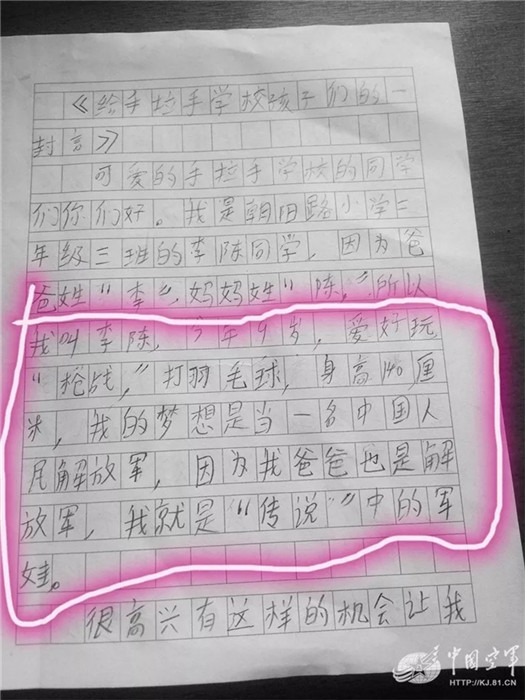 《给手拉手学校孩子们的一
封高》
可爱的手拉手学校的同学
们你们好。我是朝田路小学三
年级三班的李陈同学，因为爸
爸姓“李”，妈妈姓“陈，”所以
我叫李陈，今年9岁，爱好玩
“枪战，”打羽毛球，身高140厘
米，我的梦想是当一名中国人
民解放军，因为我爸爸也是解
放军，我就是“传说”中的军
娃。
很高兴有这样的机会让我
中国空军
HTTP://KJ.81.CN